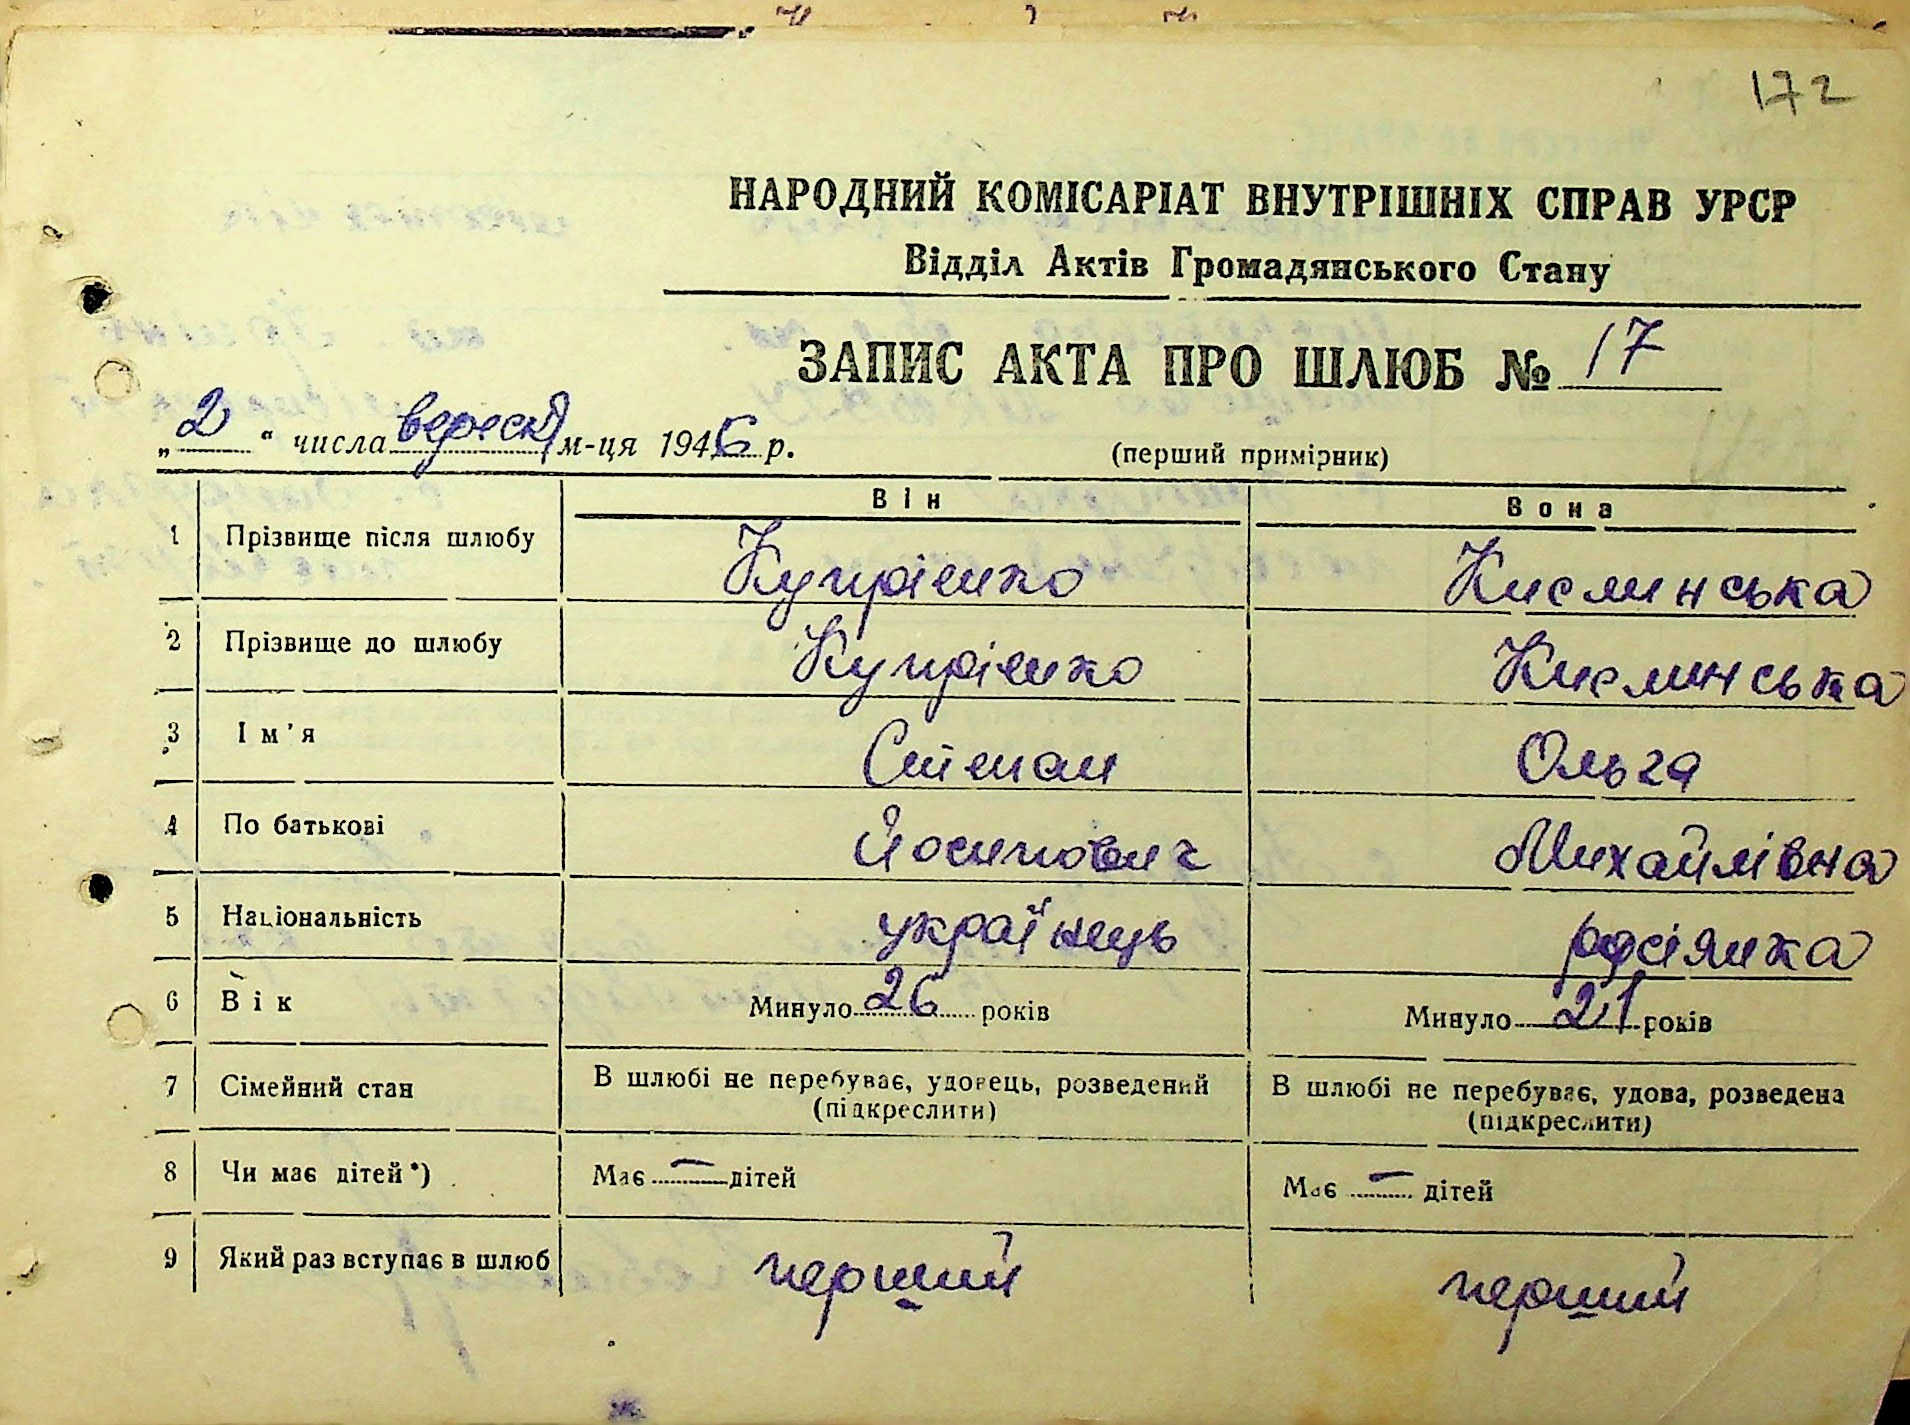 172
НАРОДНИЙ КОМІСАРІАТ ВНУТРІШНІХ СПРАВ УРСР
Відділ Актів Громадянського Стану
ЗАПИС АКТА ПРО ШЛЮБ № 17
„2“ числа вересня м-ця 1946 р. (перший примірник)
Він Вона
1 Прізвище після шлюбу Купрієнко Кислинська
2 Прізвище до шлюбу Купрієнко Кислинська
3 Ім'я Степан Ольга
4 По батькові Йосипович Михайлівна
5 Національність українець росіянка
6 Вік Минуло 26 років Минуло 21 років
7 Сімейний стан В шлюбі не перебуває, удовець, розведений В шлюбі не перебуває, удова, розведена
(підкреслити) (підкреслити)
8 Чи має дітей *) Має — дітей Має — дітей
9 Який раз вступає в шлюб перший перший